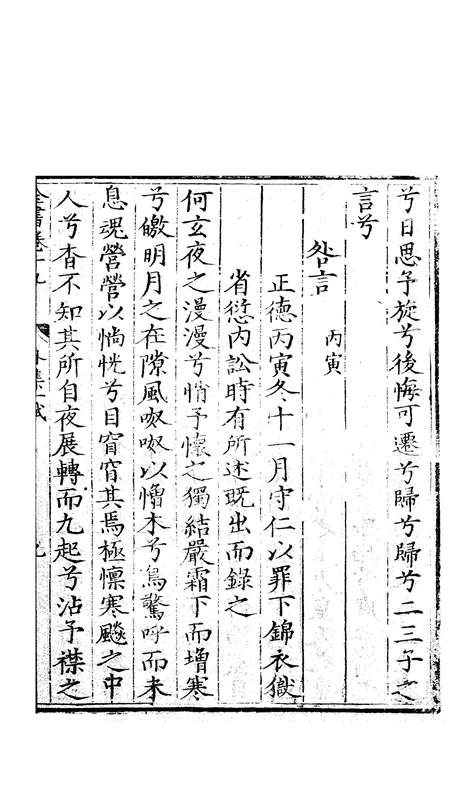 兮日思予旋兮後悔可遷兮歸兮歸兮二三子之
言兮
咎言
丙寅
正德丙寅冬十一月守仁以罪下錦衣獄
省愆內訟時有所述既出而錄之
何玄夜之漫漫兮悄予懷之獨結嚴霜下而增寒
兮皦明月之在隙風呶呶以憎木兮鳥驚呼而未
息魂營營以惝恍兮目窅窅其焉極懍寒飈之中
人兮杳不知其所自夜展轉而九起兮沾予襟之
全書卷十九
外集一
九